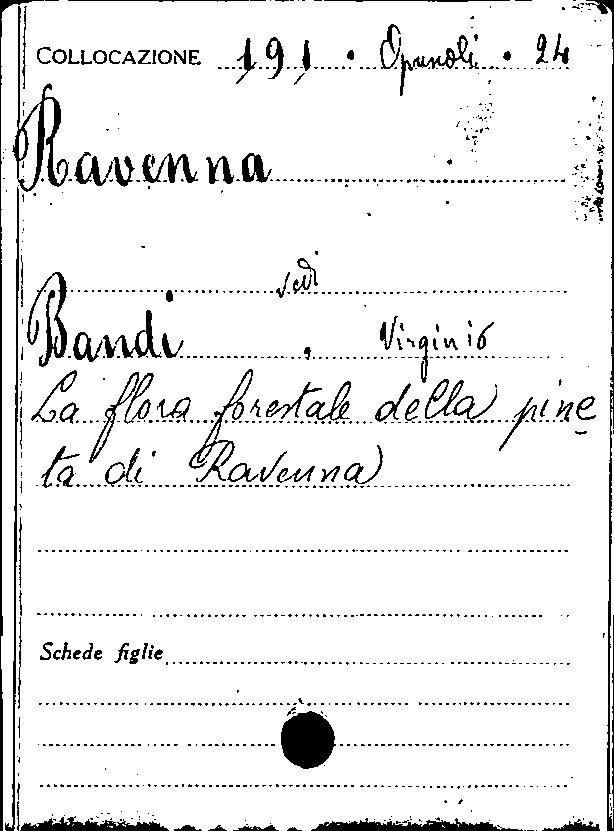 COLLOCAZIONE 191 . Opuscoli . 24
Ravenna
vedi
Bandi , Virginio
La flora forestale della pine
ta di Ravenna
Schede figlie